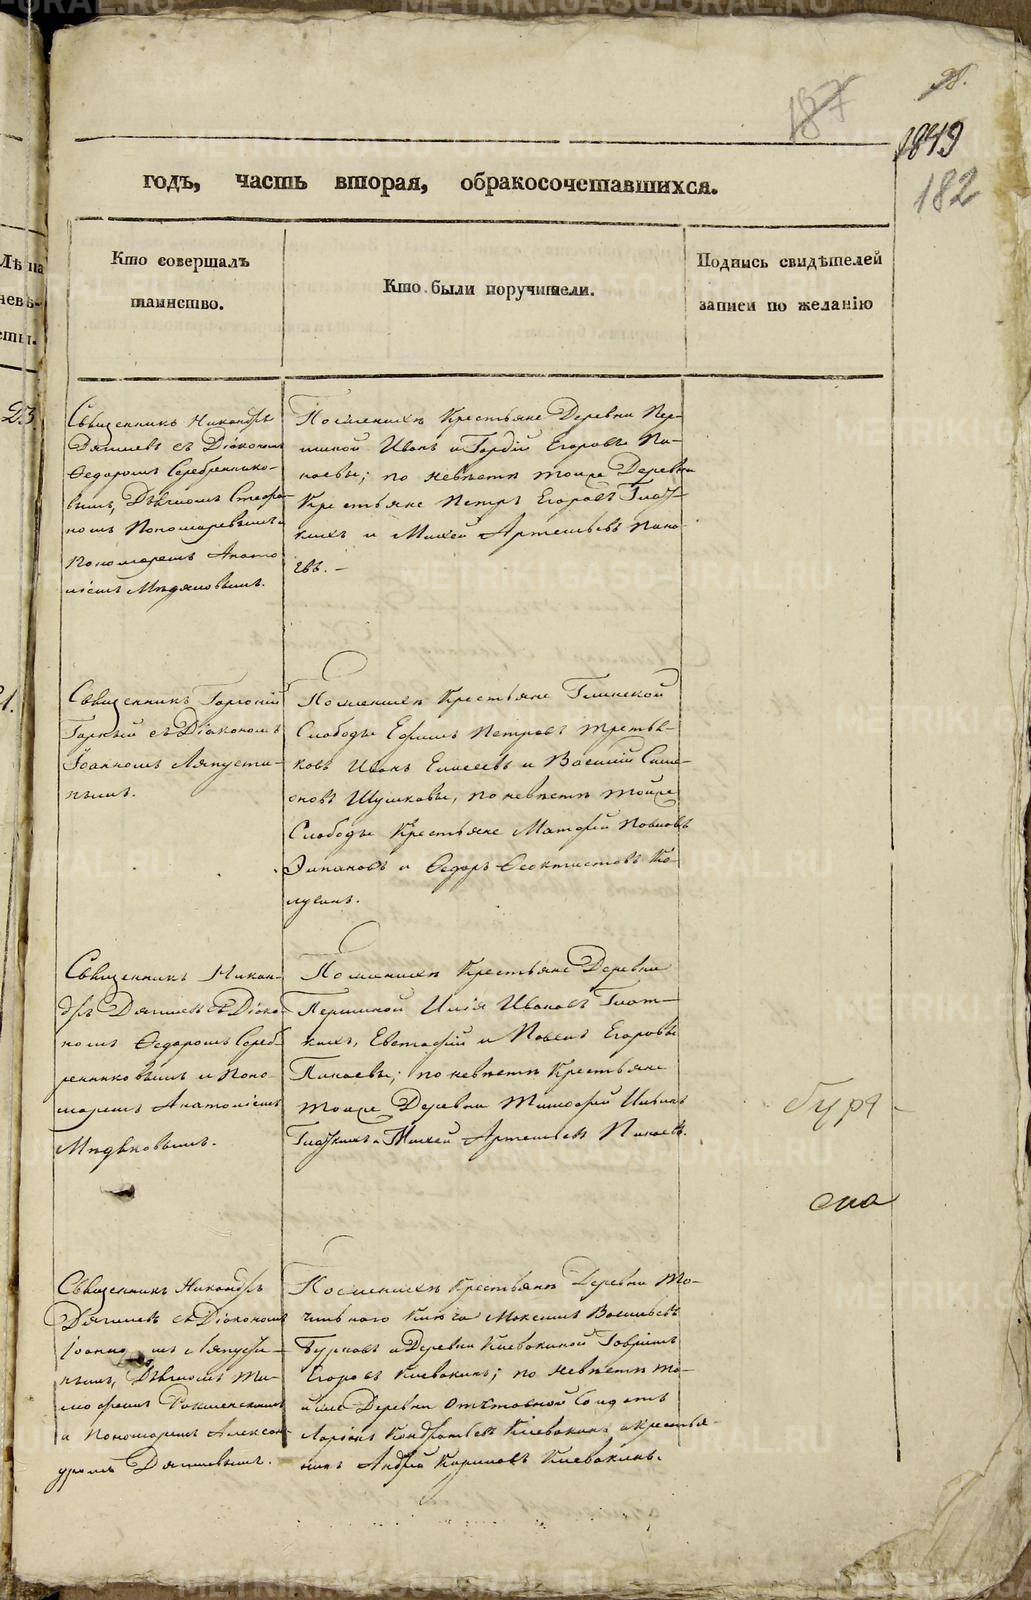 187
1849
182
годъ, часть вторая, обракосочетавшихся.
Лѣта
невѣ-
сты.
Кто совершалъ
таинство.
Кто были поручители.
Подпись свидѣтелей
записи по желанію
23
Священникъ Никандръ
Дягилевъ съ Діакономъ
Ѳедоромъ Серебреннико-
вымъ, Дьячкомъ Стефа-
номъ Пономаревымъ и
Пономаремъ Анато-
ліемъ
По женихѣ Крестьяне Деревни Пер-
шиной Иванъ и Гордій Егоровы Па-
наевы; по невѣстѣ тойже Деревни
Крестьяне Петръ Егоровъ Глад-
кихъ и Михей Артемьевъ Пана-
евъ. –
21.
Священникъ Горгоній
съ Діакономъ
Іоанномъ Ляпусти-
нымъ.
По женихѣ Крестьяне Глинской
Слободы Ефимъ Петровъ Третья-
ковъ Иванъ Елисеевъ и Василій Сим-
оновъ Шушковы, по невѣстѣ тойже
Слободы Крестьяне Матфей Павловъ
и Ѳедоръ Ѳеоктистовъ Ко-
Священникъ Никан-
дръ Дягилевъ съ Діако-
номъ Ѳедоромъ Сереб-
ренниковымъ и Поно-
маремъ Анатоліемъ
По женихѣ Крестьяне Деревни
Першиной Илія Ивановъ Глад-
кихъ, Евстафій и Павелъ Егоровы
Панаевы; по невѣстѣ Крестьяне
тойже Деревни Тимофей Ильинъ
Гладкихъ и Михей Артемьевъ Панаевъ.
Священникъ Никандръ
Дягилевъ съ Діакономъ
Іоанномъ Ляпусти-
нымъ, Дьячкомъ Ти-
мофеемъ
и Пономаремъ Алексан-
дромъ Дягилевымъ.
По женихѣ Крестьяне Деревни Мо-
чильнаго Ключа Максимъ Васильевъ
Бурновъ и Деревни Киевакиной Гавріилъ
Егоровъ Киевакинъ; по невѣстѣ то-
йже Деревни Отставной Солдатъ
Ларіонъ Кондратьевъ Киевакинъ и крестья-
нинъ Андрей Кириловъ Киевакинъ.
METRIKI.GASU-URAL.RU